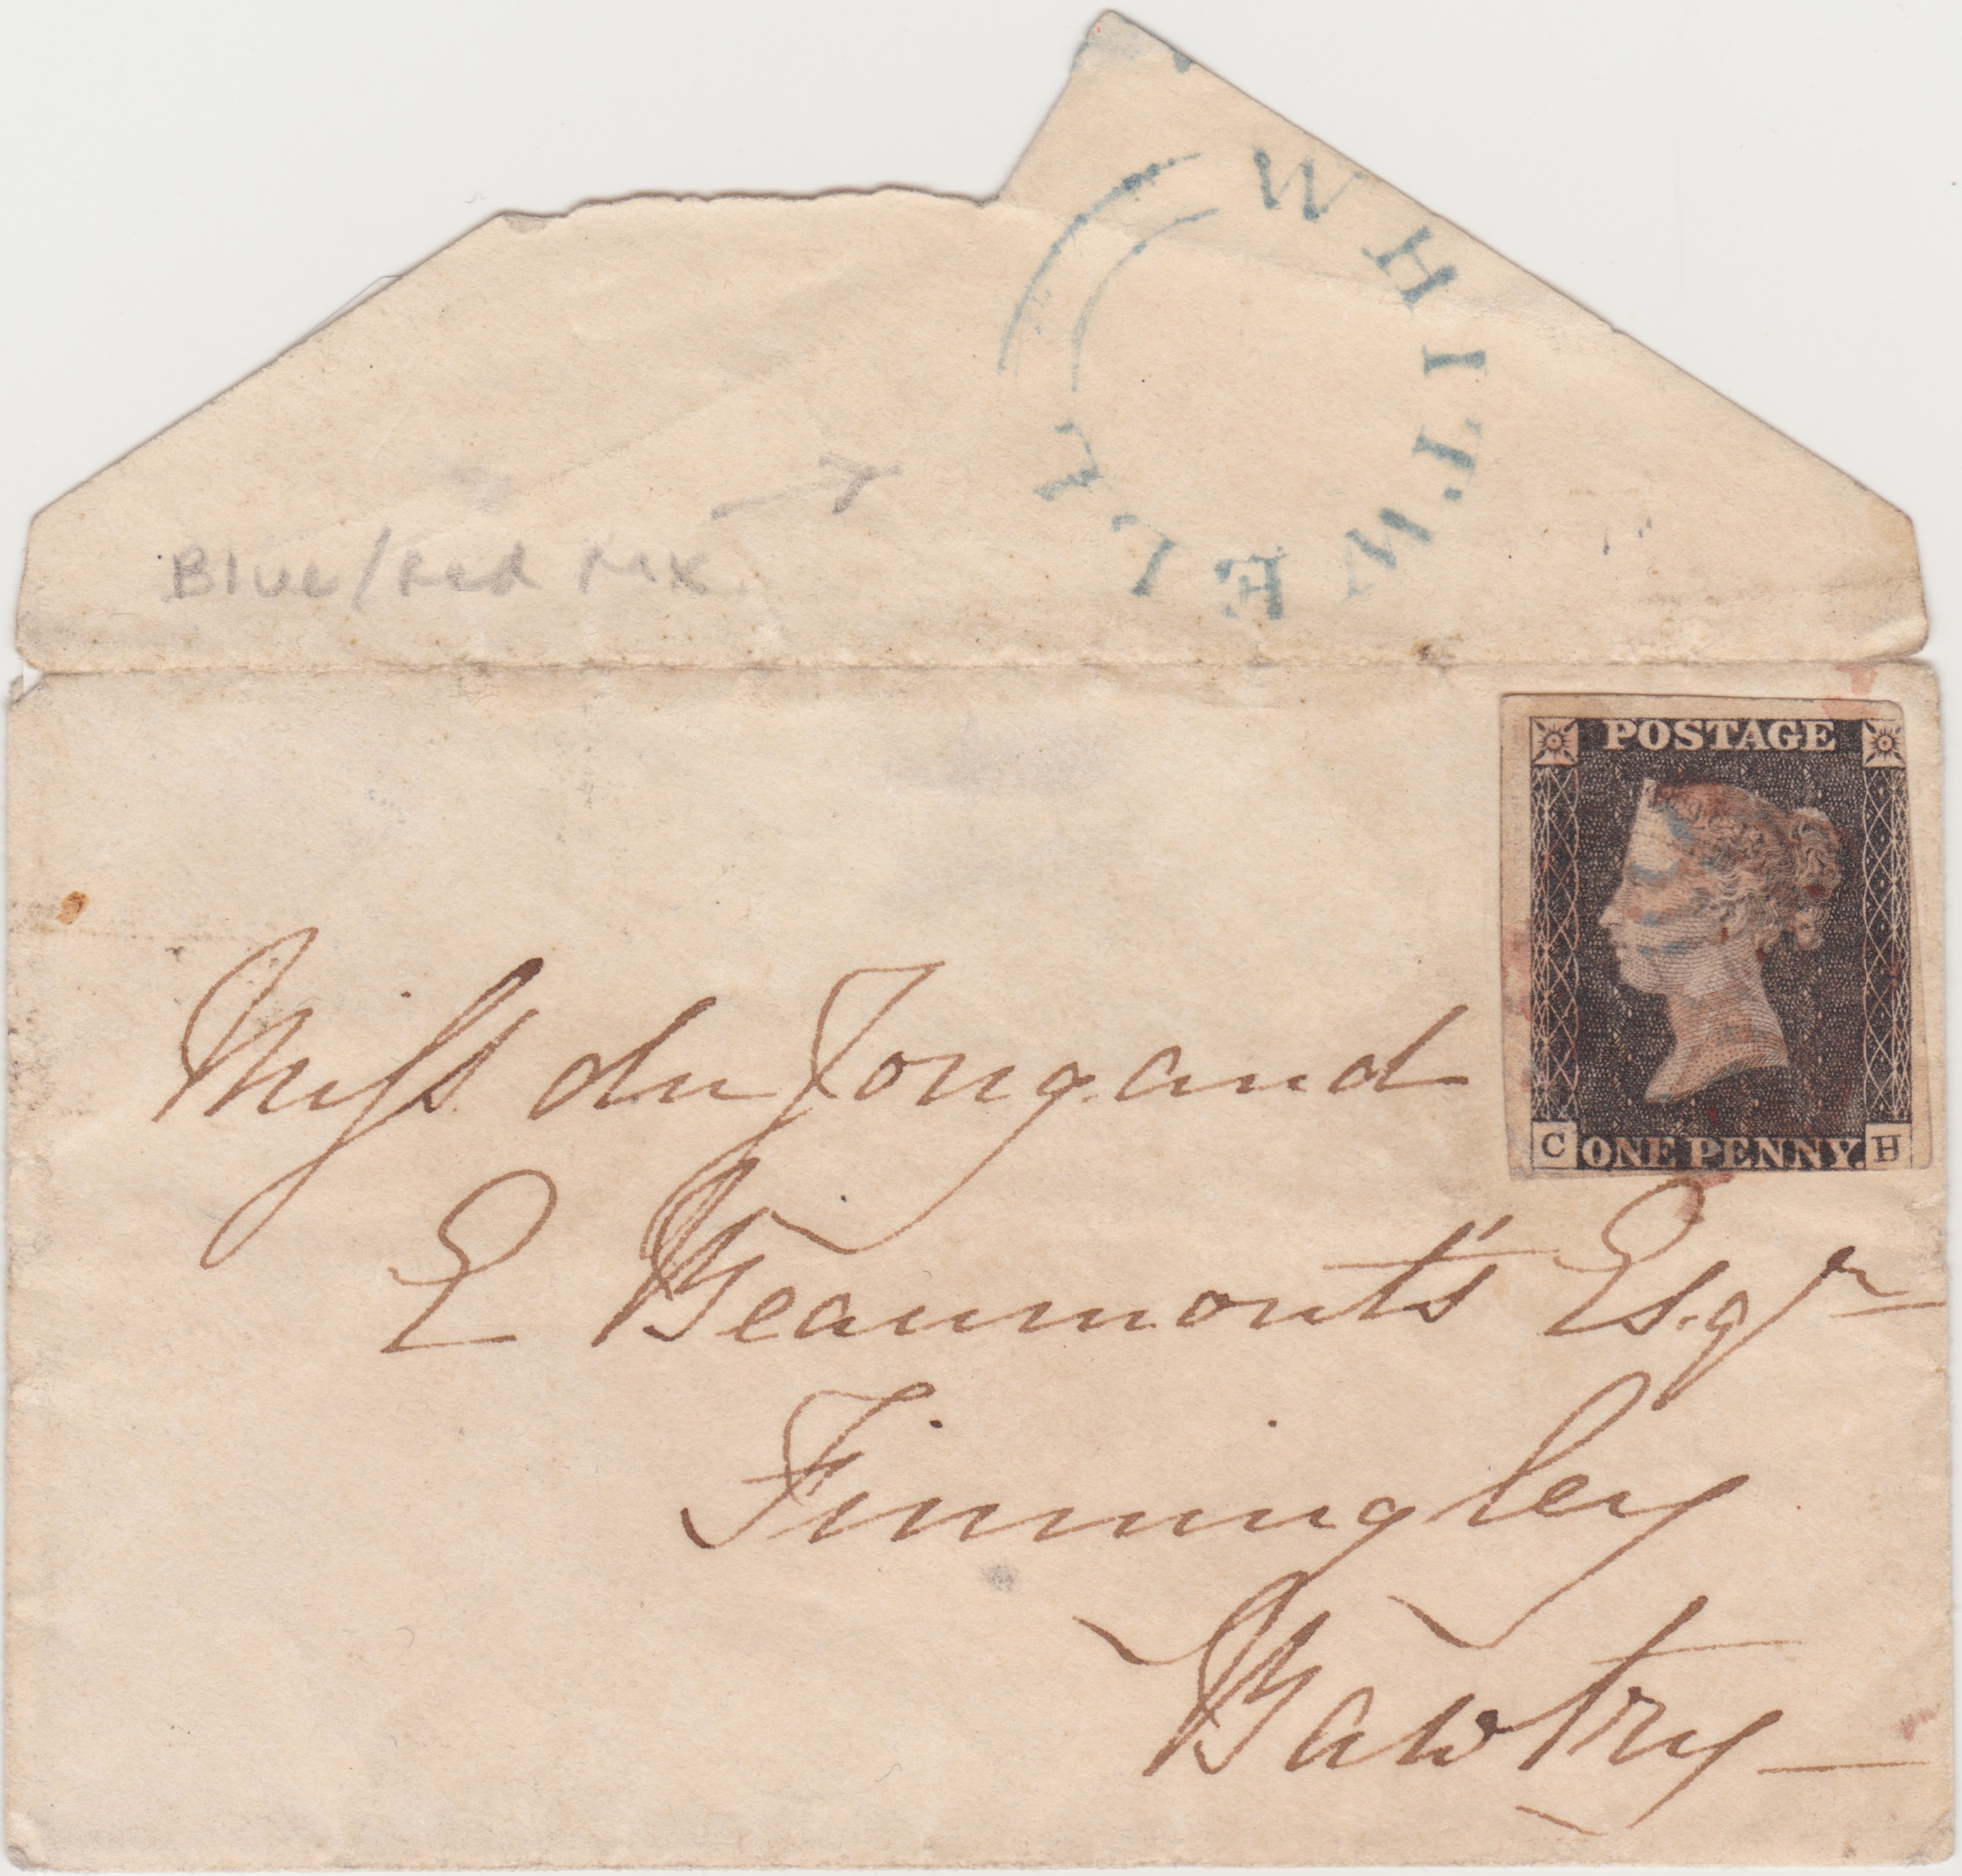 WHITWELL
Blue/Red MX
POSTAGE
C ONE PENNY. H
Miss du Jongand
E Beaumont's Esqr
Finningley
Bawtry